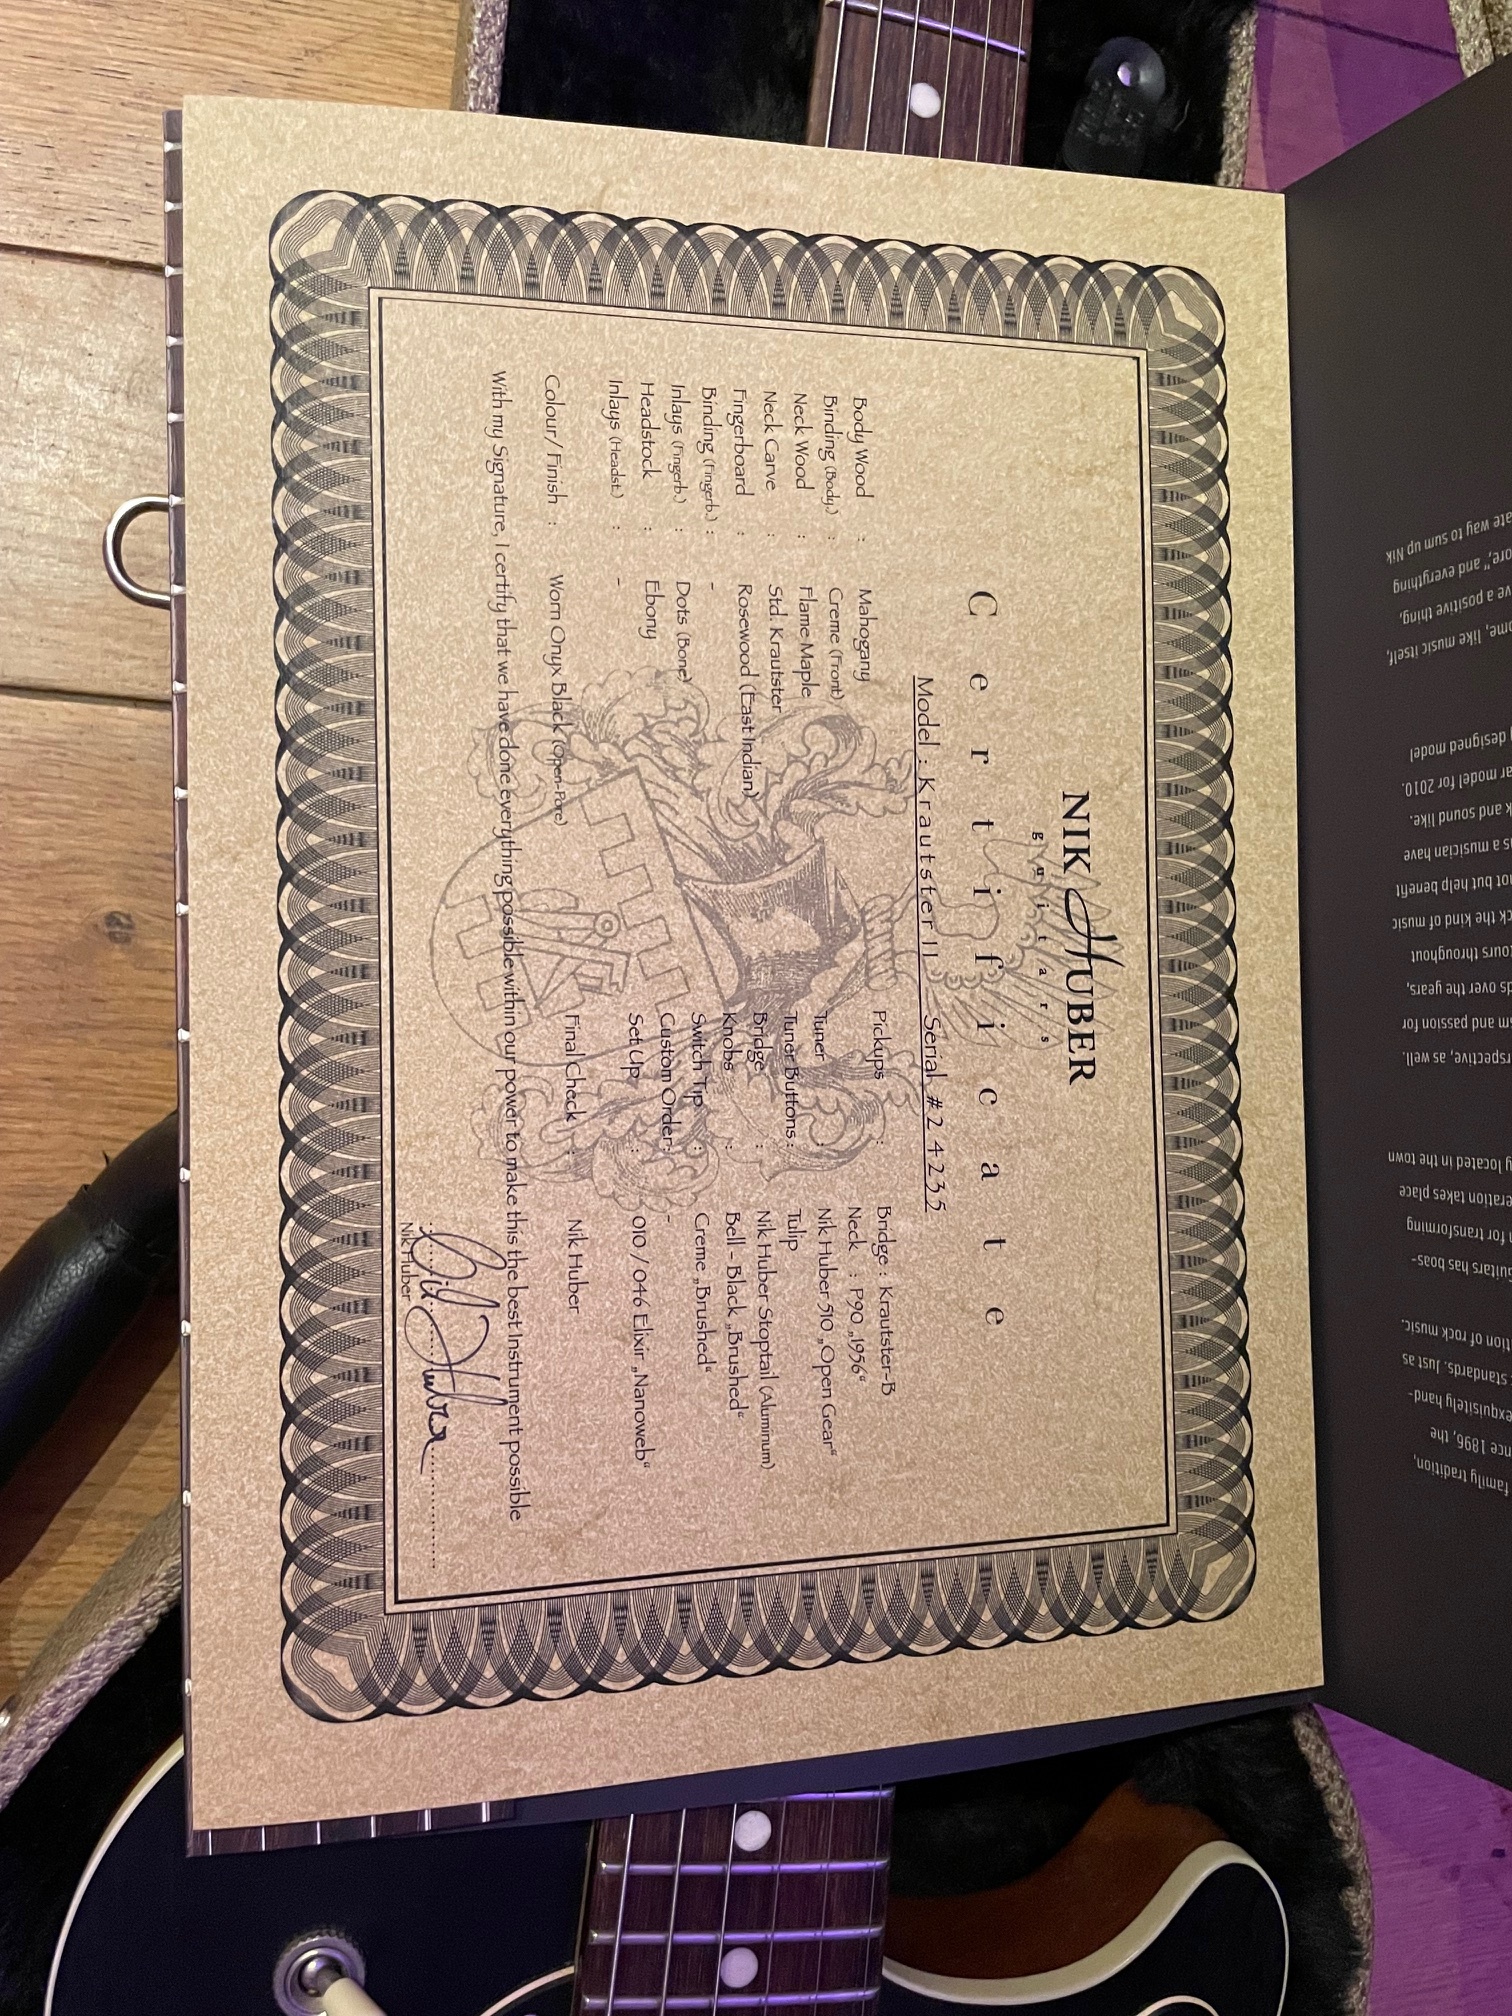 NIK HUBER
guitars
Certificate
Model : Krautster II Serial #24235
Body Wood : Mahogany
Binding (Body.) : Creme (Front)
Neck Wood : Flame Maple
Neck Carve : Std. Krautster
Fingerboard : Rosewood (East Indian)
Binding (Fingerb.) : -
Inlays (Fingerb.) : Dots (Bone)
Headstock : Ebony
Inlays (Headst.) : -
Colour/ Finish : Worn Onyx Black (Open-Pore)
Pickups : Bridge : Krautster-B
Neck : P90 „1956“
Tuner : Nik Huber 510 „Open Gear“
Tuner Buttons : Tulip
Bridge : Nik Huber Stoptail (Aluminum)
Knobs : Bell - Black „Brushed“
Switch Tip : Creme „Brushed“
Custom Order: -
Set Up : 010 / 046 Elixir „Nanoweb“
Final Check : Nik Huber
With my Signature, I certify that we have done everything possible within our power to make this the best Instrument possible
Nik Huber
Nik Huber
family tradition,
nce 1896, the
exquisitely hand-
standards. Just as
tion of rock music.
uitars has boas-
for transforming
eration takes place
y located in the town
rspective, as well.
m and passion for
ds over the years,
tours throughout
ck the kind of music
not but help benefit
s a musician have
k and sound like.
ar model for 2010.
designed model
ome, like music itself,
ve a positive thing,
ore," and everything
ate way to sum up Nik